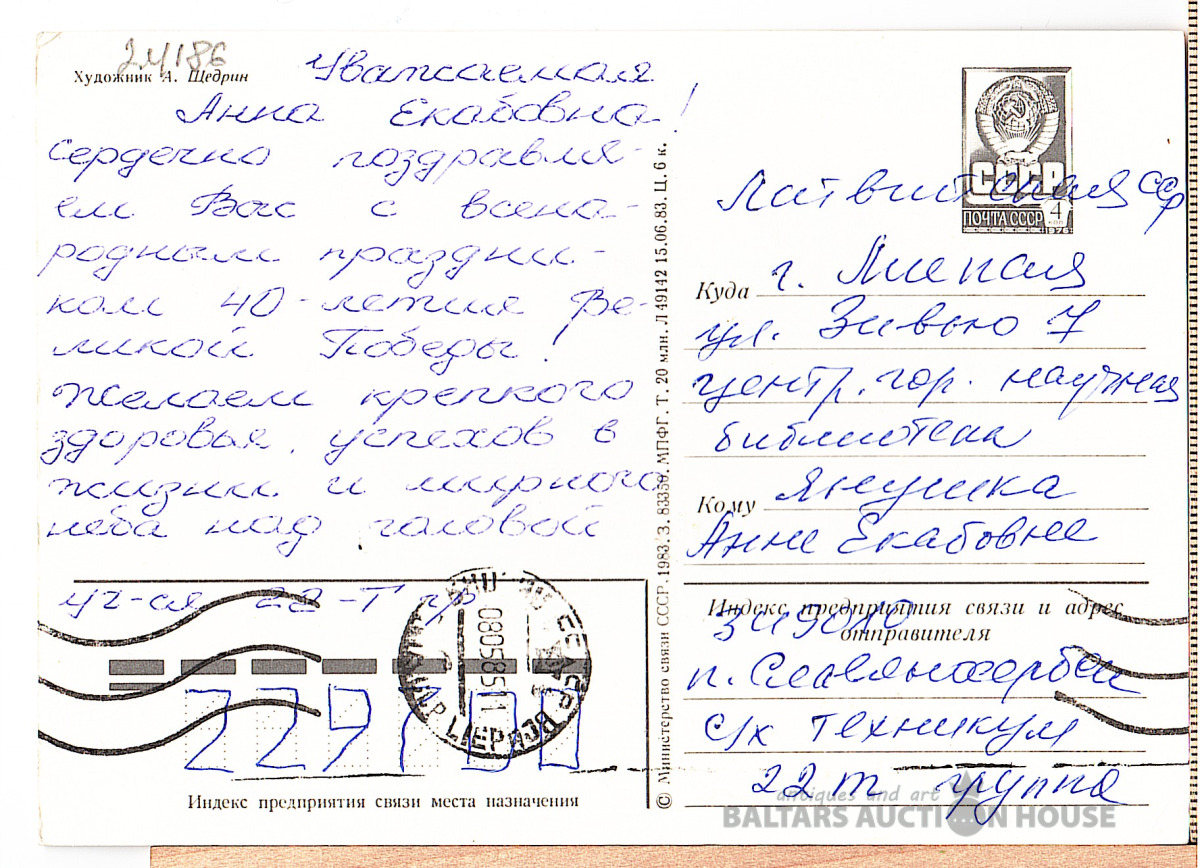 24186
Художник А. Щедрин
Уважаемая
Анна Екабовна!
Сердечно поздравля-
ем Вас с всена-
родным праздни-
ком 40-летия Ве-
ликой Победы!
Желаем крепкого
здоровья, успехов в
жизни и мирного
неба над головой
уч-ся 22-Т гр
229700
Индекс предприятия связи места назначения
LIEPAJA
080585 11
© Министерство связи СССР. 1983. З. 83350. МПФГ. Т. 20 млн. Л 49142 15.06.83. Ц. 6 к.
СССР
ПОЧТА СССР 4 КОП
1976
Латвийская ССР
Куда г. Лиепая
ул. Зивью 7
центр. гор. научная
библиотека
Кому Янушка
Анне Екабовне
Индекс предприятия связи и адрес
отправителя
п. Славяносербск
с/х техникум
22т группа
antiques and art
BALTARS AUCTION HOUSE